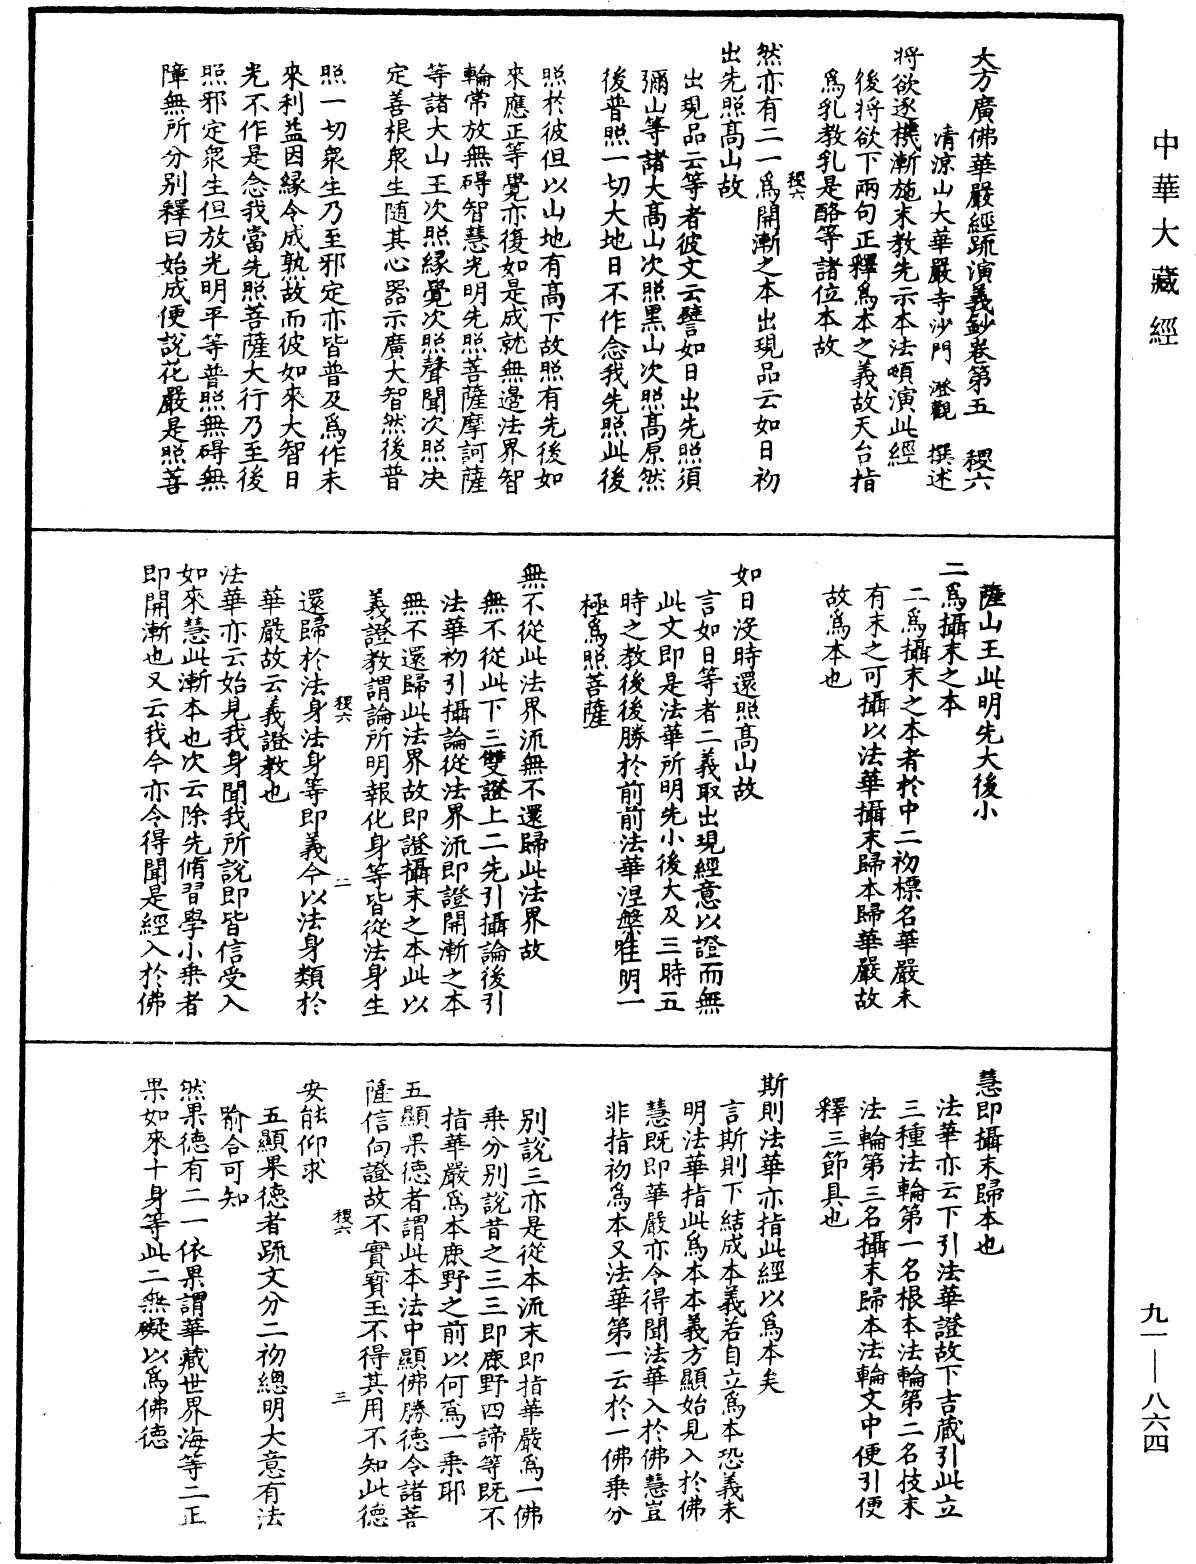 中華大藏經
大方廣佛華嚴經疏演義鈔卷第五　稷六
清涼山大華嚴寺沙門　澄觀　撰述
將欲逐機漸施末教先示本法頓演此經
後將欲下兩句正釋為本之義故天台指
為乳教乳是酪等諸位本故
稷六
然亦有二一為開漸之本出現品云如日初
出先照高山故
出現品云等者彼文云譬如日出先照須
彌山等諸大高山次照黑山次照高原然
後普照一切大地日不作念我先照此後
照於彼但以山地有高下故照有先後如
來應正等覺亦復如是成就無邊法界智
輪常放無碍智慧光明先照菩薩摩訶薩
等諸大山王次照緣覺次照聲聞次照决
定善根衆生随其心器示廣大智然後普
照一切衆生乃至邪定亦皆普及為作未
來利益因緣令成熟故而彼如來大智日
光不作是念我當先照菩薩大行乃至後
照邪定衆生但放光明平等普照無碍無
障無所分别釋曰始成便說花嚴是照菩
薩山王此明先大後小
二為攝末之本
二為攝末之本者於中二初標名華嚴未
有末之可攝以法華攝末歸本歸華嚴故
故為本也
如日沒時還照高山故
言如日等者二義取出現經意以證而無
此文即是法華所明先小後大及三時五
時之教後後勝於前前法華涅槃唯明一
極為照菩薩
無不從此法界流無不還歸此法界故
無不從此下三雙證上二先引攝論後引
法華初引攝論從法界流即證開漸之本
無不還歸此法界故即證攝末之本此以
義證教謂論所明報化身等皆從法身生
稷六　二
還歸於法身法身等即義今以法身類於
華嚴故云義證教也
法華亦云始見我身聞我所說即皆信受入
如來慧此漸本也次云除先脩習學小乘者
即開漸也又云我今亦令得聞是經入於佛
慧即攝末歸本也
法華亦云下引法華證故下吉藏引此立
三種法輪第一名根本法輪第二名技末
法輪第三名攝末歸本法輪文中便引便
釋三節具也
斯則法華亦指此經以為本矣
言斯則下結成本義若自立為本恐義未
明法華指此為本本義方顯始見入於佛
慧既即華嚴亦令得聞法華入於佛慧豈
非指初為本又法華第一云於一佛乘分
别說三亦是從本流末即指華嚴為一佛
乘分别說昔之三三即鹿野四諦等既不
指華嚴為本鹿野之前以何為一乘耶
五顯果德者謂此本法中顯佛勝德令諸菩
薩信向證故不實寳玉不得其用不知此德
稷六　三
安能仰求
五顯果德者疏文分二初總明大意有法
喻合可知
然果德有二一依果謂華藏世界海等二正
果如來十身等此二無礙以為佛德
九一—八六四